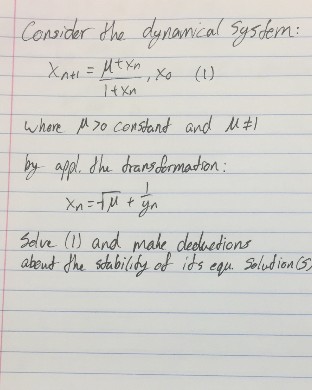 Consider the dynamical system:
Xn+1 = μ+xn / 1+xn , X0 (1)
where μ>0 constant and μ≠1
by appl. the transformation:
Xn = √μ + 1/yn
Solve (1) and make deductions
about the stability of its equ. Solution(s)